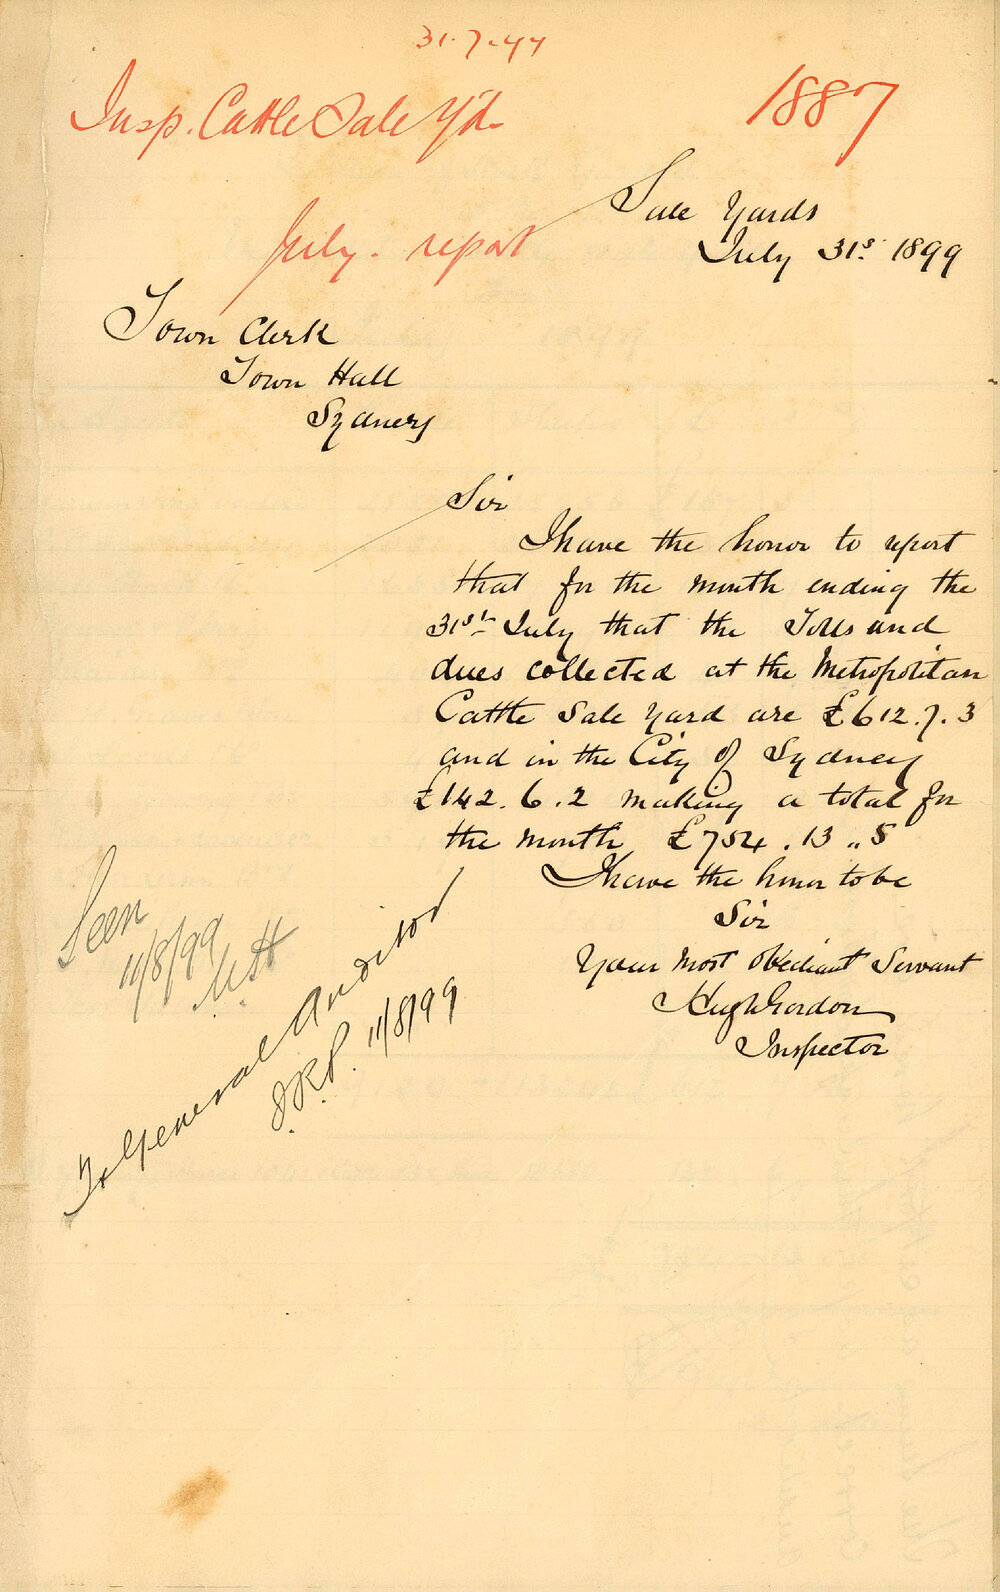 31.7.99
Insp. Cattle Sale Yd
1887
July. report
Sale Yards
July 31st 1899
Town Clerk
Town Hall
Sydney
Sir
I have the honor to report
that for the month ending the
31st July that the Tolls and
dues collected at the Metropolitan
Cattle Sale Yard are £612.7.3
and in the City of Sydney
£142.6.2 making a total for
the month £754.13..5
I have the honor to be
Sir
Your most obediant Servant
Hugh Gordon
Inspector
Seen
11/8/99
To General Auditor
11/8/99